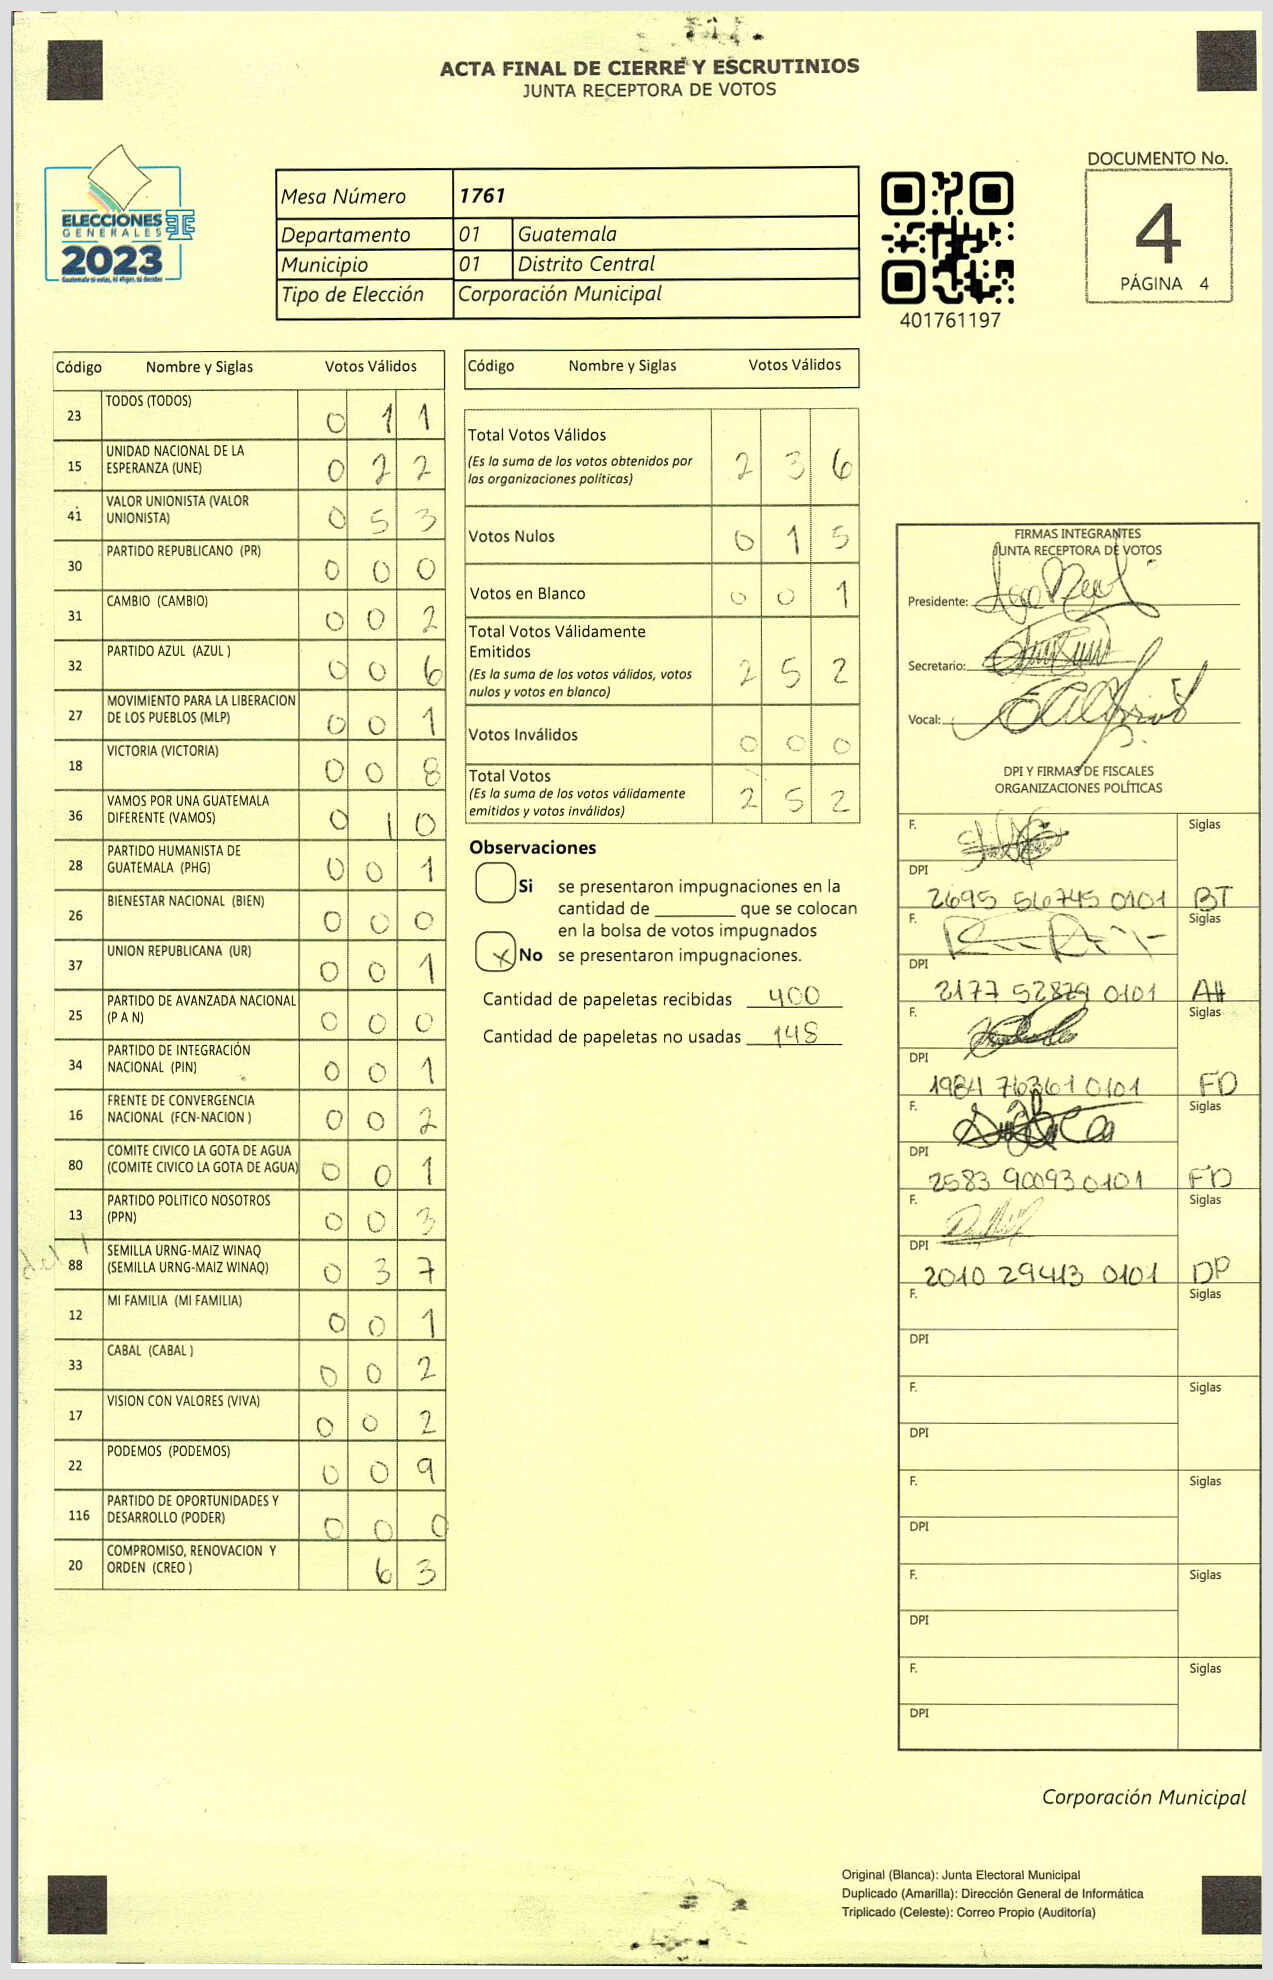 ACTA FINAL DE CIERRE Y ESCRUTINIOS
JUNTA RECEPTORA DE VOTOS
ELECCIONES
GENERALES
2023
Mesa Número 1761
Departamento 01 Guatemala
Municipio 01 Distrito Central
Tipo de Elección Corporación Municipal
401761197
DOCUMENTO No.
4
PÁGINA 4
Código Nombre y Siglas Votos Válidos
23 TODOS (TODOS) 0 1 1
15 UNIDAD NACIONAL DE LA
ESPERANZA (UNE) 0 2 2
41 VALOR UNIONISTA (VALOR
UNIONISTA) 0 5 3
30 PARTIDO REPUBLICANO (PR) 0 0 0
31 CAMBIO (CAMBIO) 0 0 2
32 PARTIDO AZUL (AZUL ) 0 0 6
27 MOVIMIENTO PARA LA LIBERACION
DE LOS PUEBLOS (MLP) 0 0 1
18 VICTORIA (VICTORIA) 0 0 8
36 VAMOS POR UNA GUATEMALA
DIFERENTE (VAMOS) 0 1 0
28 PARTIDO HUMANISTA DE
GUATEMALA (PHG) 0 0 1
26 BIENESTAR NACIONAL (BIEN) 0 0 0
37 UNION REPUBLICANA (UR) 0 0 1
25 PARTIDO DE AVANZADA NACIONAL
(P A N) 0 0 0
34 PARTIDO DE INTEGRACIÓN
NACIONAL (PIN) 0 0 1
16 FRENTE DE CONVERGENCIA
NACIONAL (FCN-NACION ) 0 0 2
80 COMITE CIVICO LA GOTA DE AGUA
(COMITE CIVICO LA GOTA DE AGUA) 0 0 1
13 PARTIDO POLITICO NOSOTROS
(PPN) 0 0 3
88 SEMILLA URNG-MAIZ WINAQ
(SEMILLA URNG-MAIZ WINAQ) 0 3 7
12 MI FAMILIA (MI FAMILIA) 0 0 1
33 CABAL (CABAL ) 0 0 2
17 VISION CON VALORES (VIVA) 0 0 2
22 PODEMOS (PODEMOS) 0 0 9
116 PARTIDO DE OPORTUNIDADES Y
DESARROLLO (PODER) 0 0 0
20 COMPROMISO, RENOVACION Y
ORDEN (CREO ) 6 3
Código Nombre y Siglas Votos Válidos
Total Votos Válidos 2 3 6
(Es la suma de los votos obtenidos por
las organizaciones políticas)
Votos Nulos 0 1 5
Votos en Blanco 0 0 1
Total Votos Válidamente
Emitidos 2 5 2
(Es la suma de los votos válidos, votos
nulos y votos en blanco)
Votos Inválidos 0 0 0
Total Votos 2 5 2
(Es la suma de los votos válidamente
emitidos y votos inválidos)
Observaciones
Si se presentaron impugnaciones en la
cantidad de ________ que se colocan
en la bolsa de votos impugnados
X No se presentaron impugnaciones.
Cantidad de papeletas recibidas 400
Cantidad de papeletas no usadas 148
FIRMAS INTEGRANTES
JUNTA RECEPTORA DE VOTOS
Presidente:
Secretario:
Vocal:
DPI Y FIRMAS DE FISCALES
ORGANIZACIONES POLÍTICAS
F. Siglas
DPI
2695 56745 0101 BT
F. Siglas
DPI
2177 52879 0101 AH
F. Siglas
DPI
1984 76361 0101 FD
F. Siglas
DPI
2583 90093 0101 FD
F. Siglas
DPI
2010 29413 0101 DP
F. Siglas
DPI
F. Siglas
DPI
F. Siglas
DPI
F. Siglas
DPI
F. Siglas
DPI
Corporación Municipal
Original (Blanca): Junta Electoral Municipal
Duplicado (Amarilla): Dirección General de Informática
Triplicado (Celeste): Correo Propio (Auditoría)